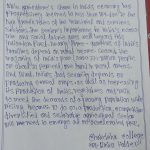 More agriculture's share in India, economy has
progressively declined to less than 15% due to the
high growth rates of the industrial and services
sectors, the sector's importance in India's economic
and social fabric goes well beyond this
indicator. First, nearly three-quarters of India's
families depend on rural incomes. Second, the
majority of India's poor (some 770 million people
or about 70 percent) are found in rural areas.
And third, India's food security depends on
producing cereal crops, as well as increasing
its production of fruits, vegetables and milk
to meet the demands of a growing population with
rising incomes. To do so, a productive, competitive,
diversified and sustainable agricultural sector
will need to emerge at an accelerated pace.